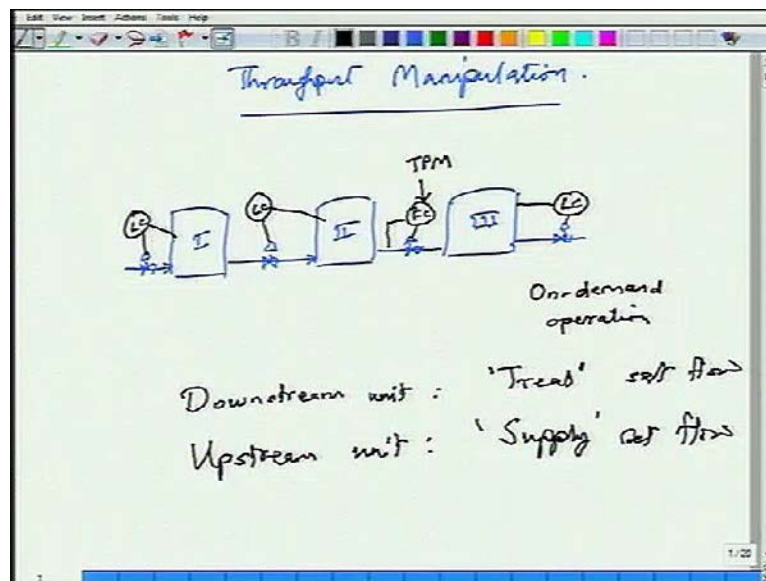 Edit View Insert Actions Tools Help
B I
Throughput Manipulation.
TPM
LC LC FC LC
I II III
On-demand
operation
Downstream unit : 'Treat' set flow
Upstream unit : 'Supply' set flow
1/20